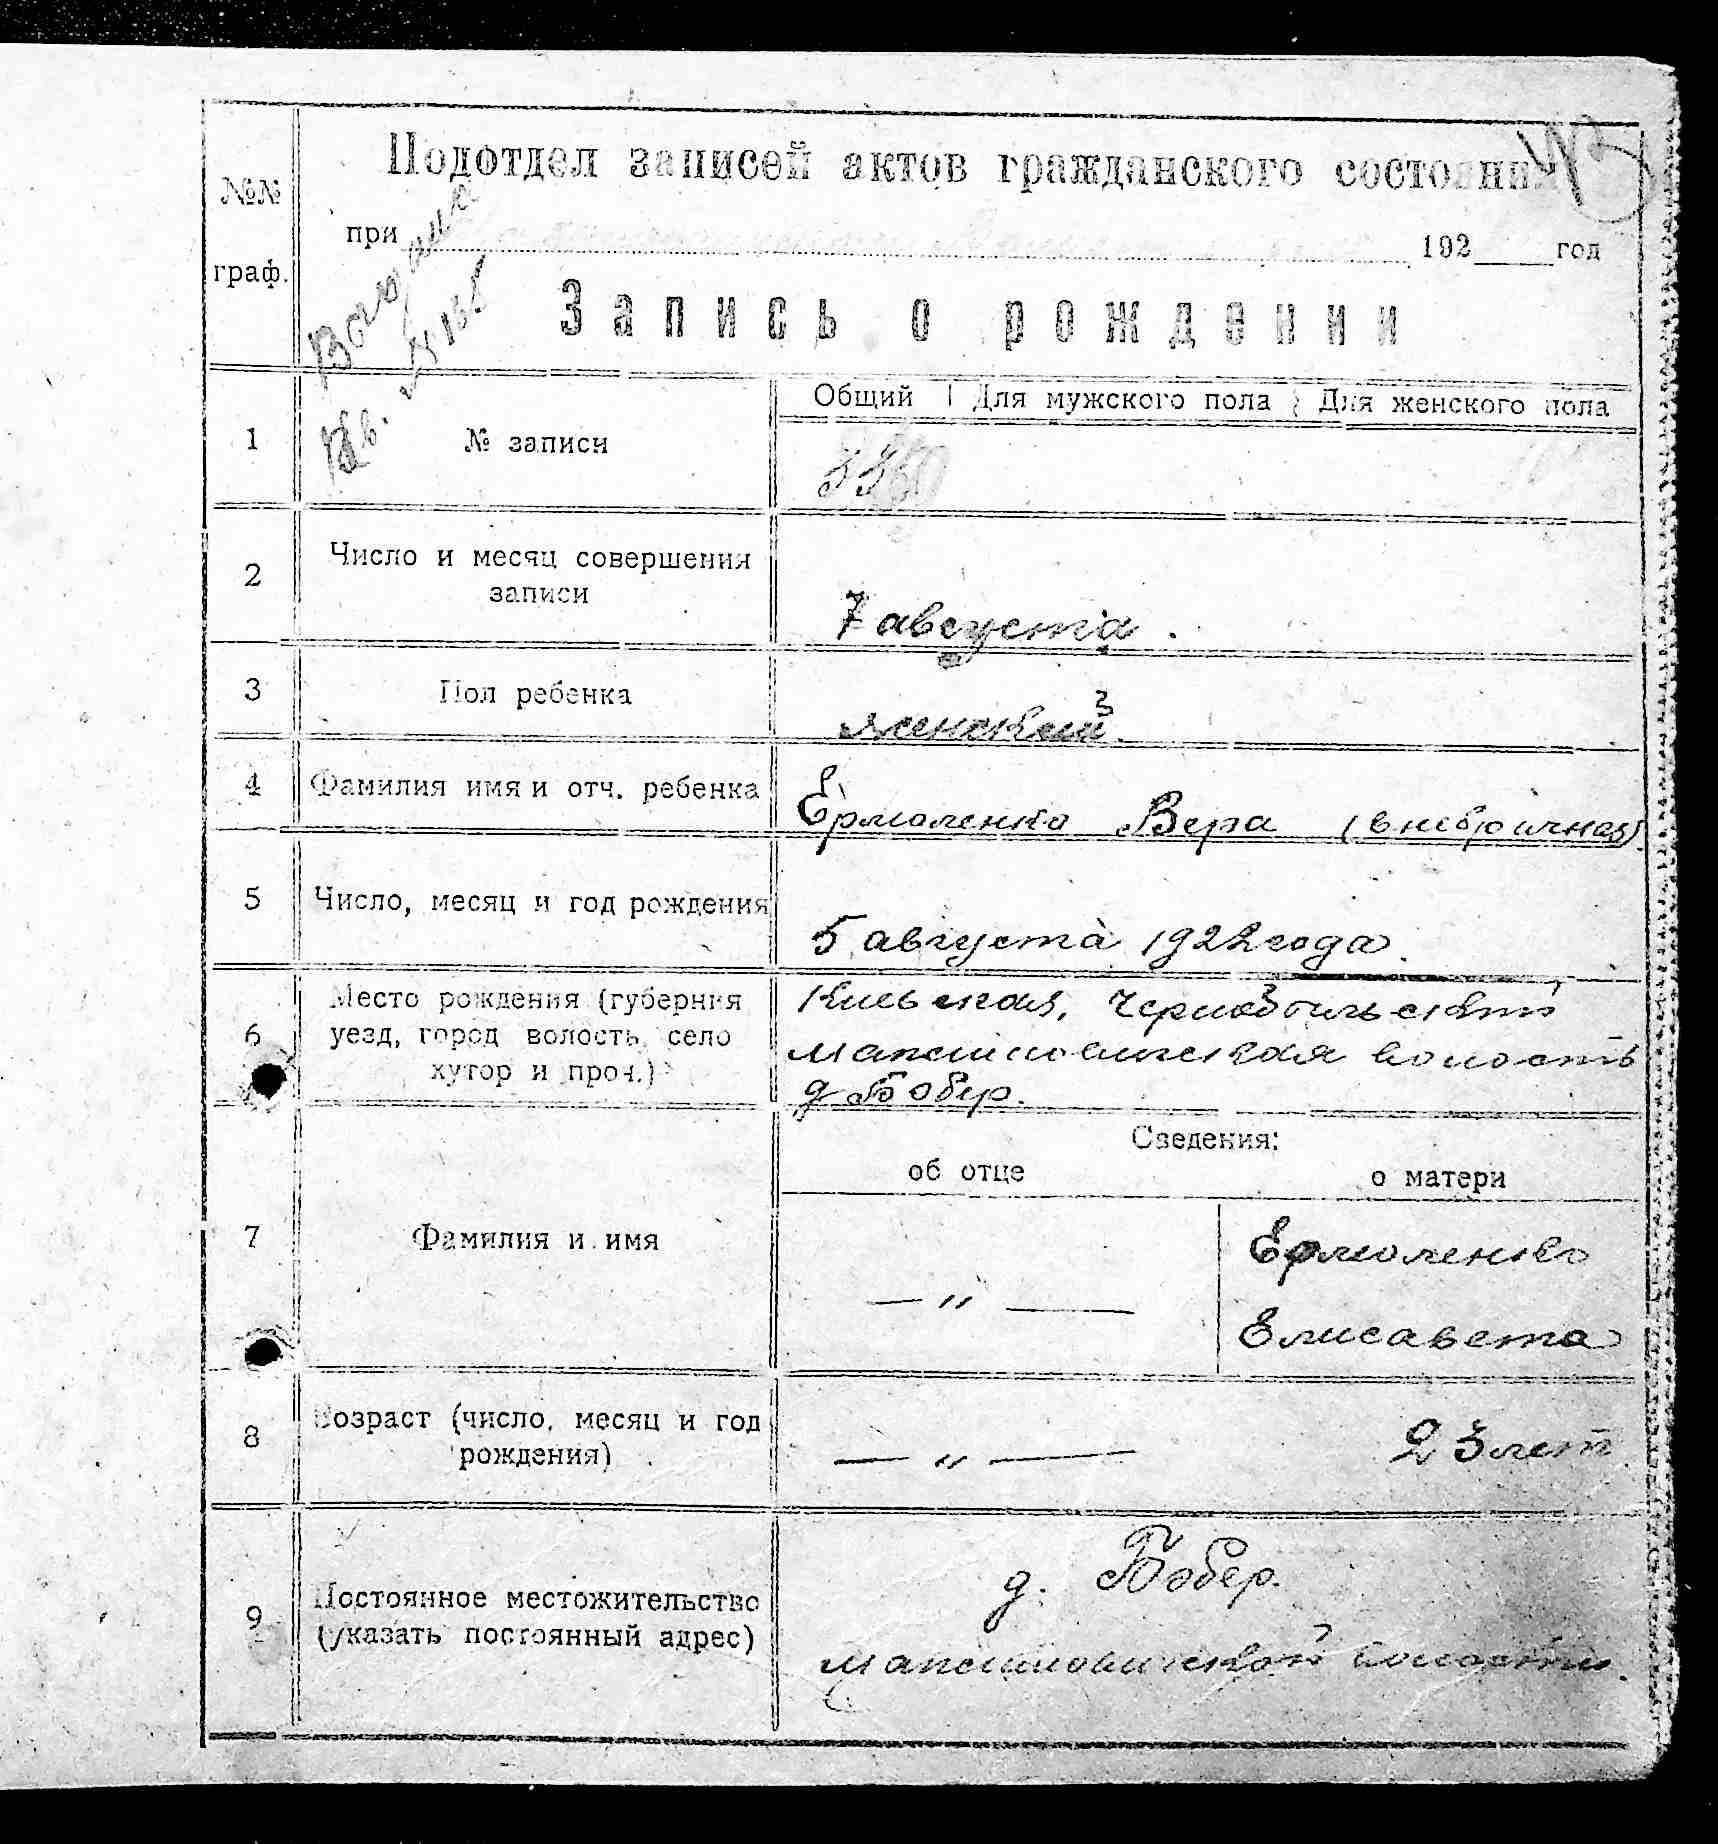 №№
граф.
Подотдел записей актов гражданского состояния
при 192 год
Запись о рождении
Общий Для мужского пола Для женского пола
1 № записи
2 Число и месяц совершения
записи
7 августа.
3 Пол ребенка женский.
4 Фамилия имя и отч. ребенка Ермоленко Вера (внебрачная)
5 Число, месяц и год рождения 5 августа 1922 года.
6 Место рождения (губерния
уезд, город волость, село
хутор и проч.)
Киевская, Чернобыльский
Максимовическая волость
д Бобер.
Сведения:
об отце о матери
7 Фамилия и имя — „ — Ермоленко
Елисавета
8 Возраст (число, месяц и год
рождения)
— „ — 23 лет
9 Постоянное местожительство
(указать постоянный адрес)
д. Бобер.
Максимовической волости.